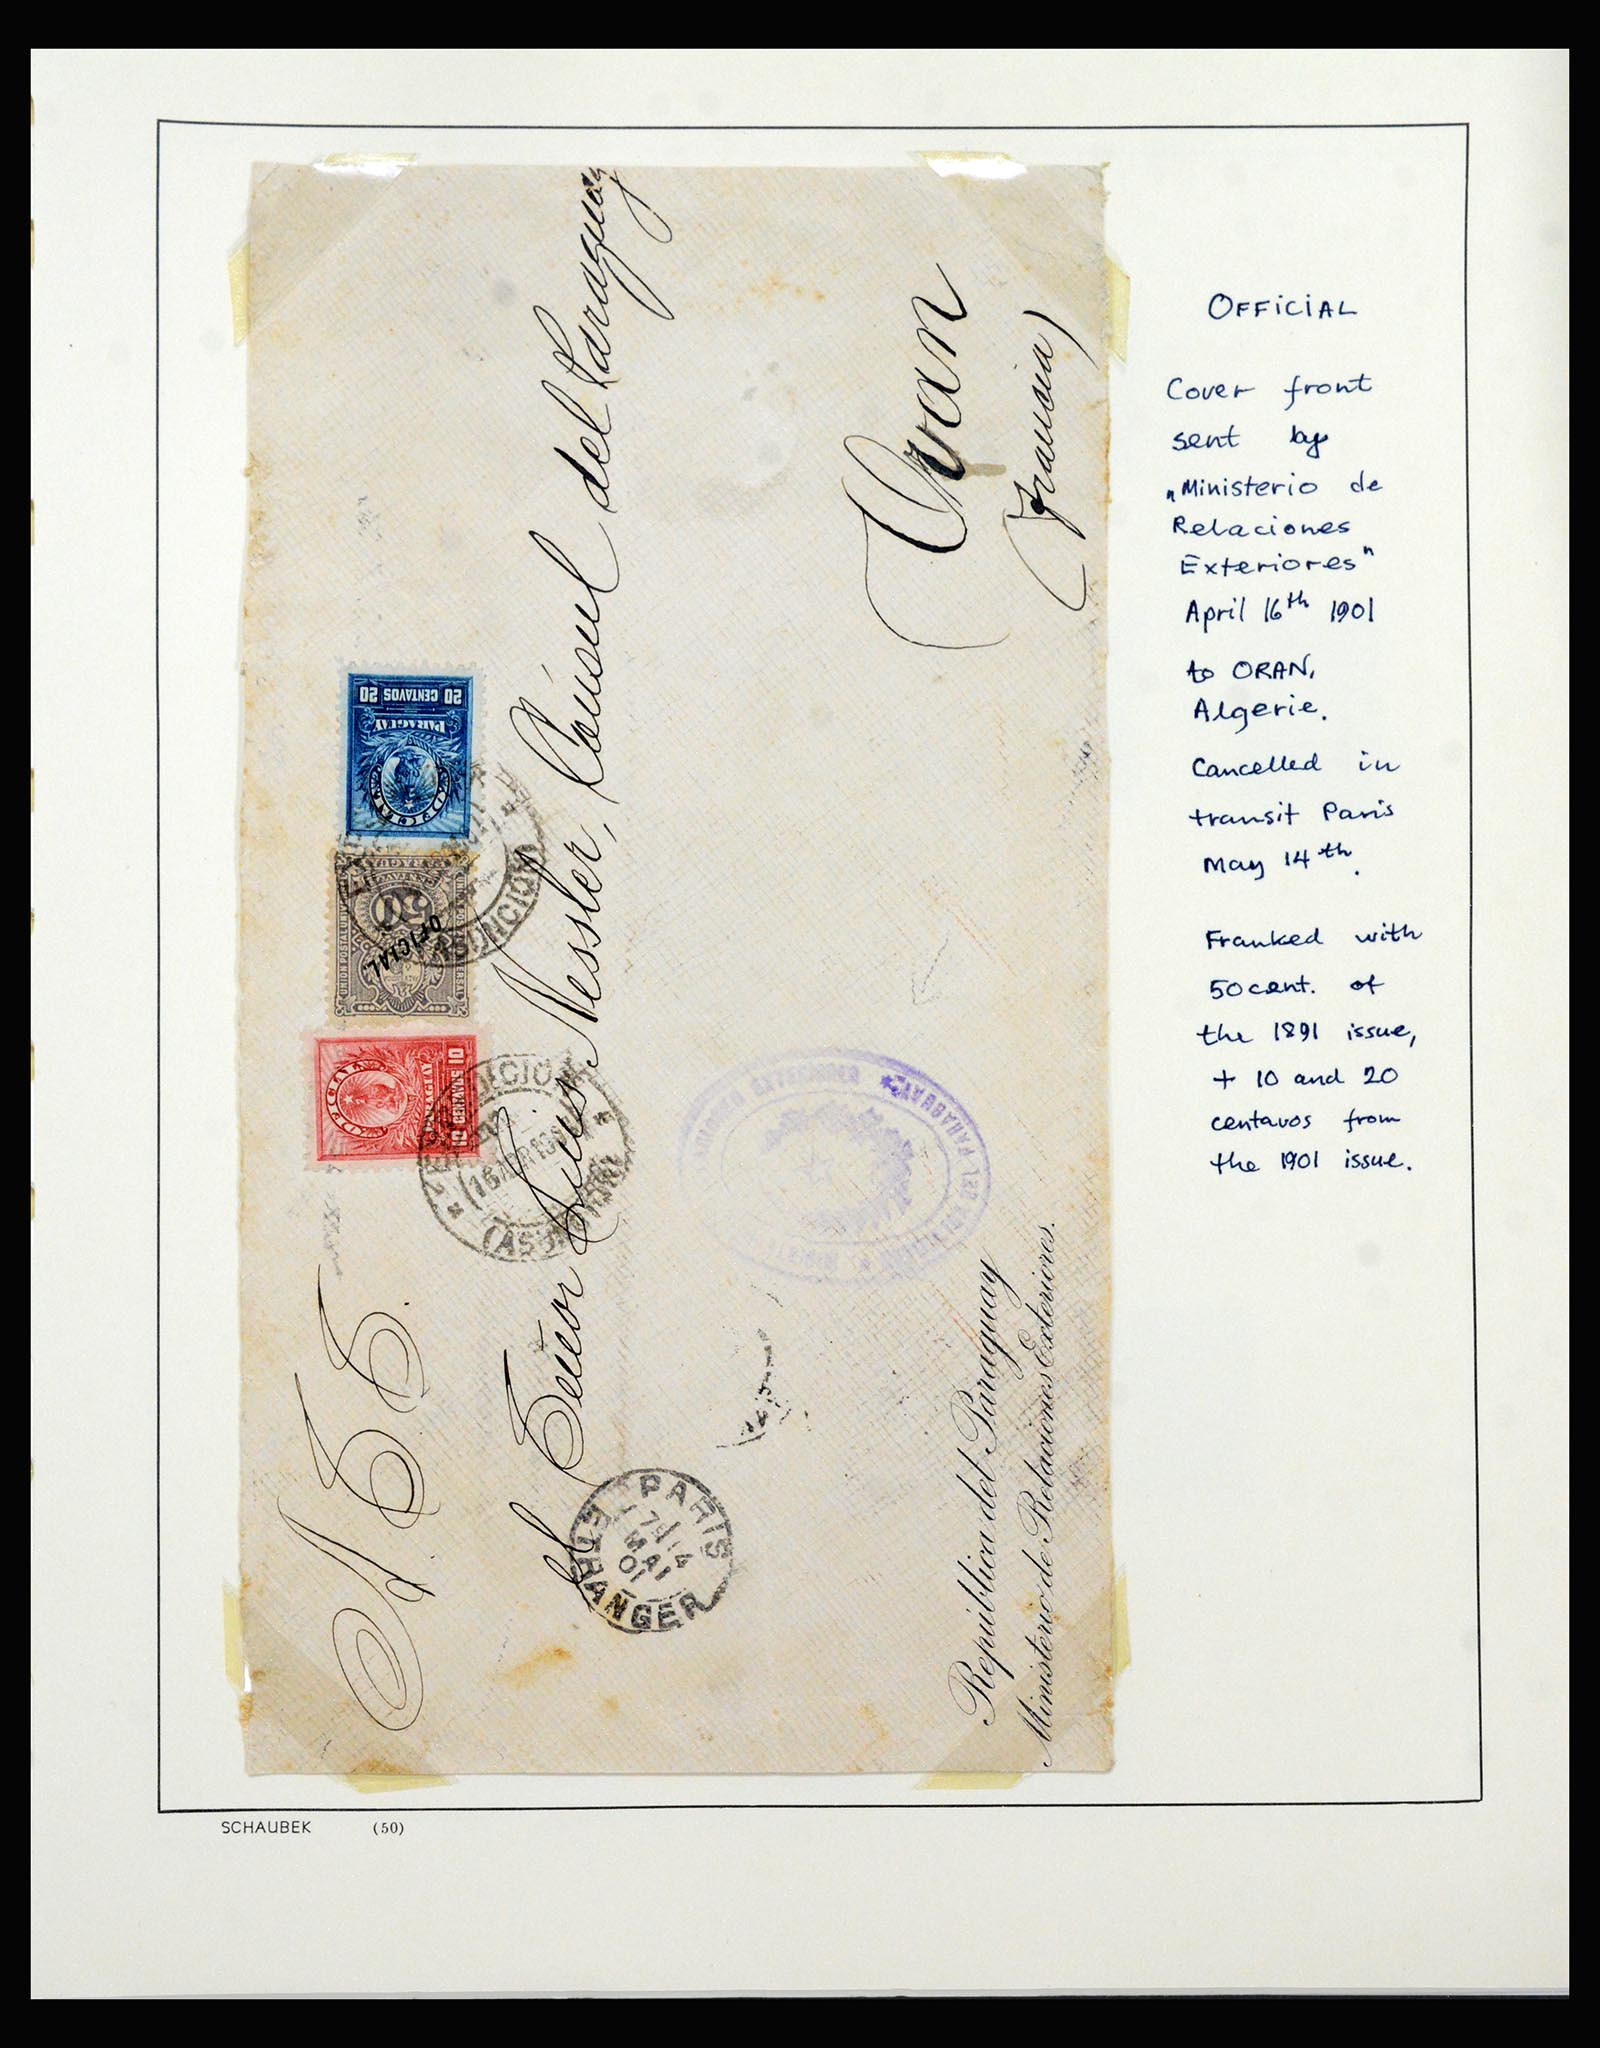 OFFICIAL
Cover front
sent by
"Ministerio de
Relaciones
Exteriores"
April 16th 1901
to ORAN,
Algerie.
Cancelled in
transit Paris
May 14th.
Franked with
50 cent. of
the 1891 issue,
+ 10 and 20
centavos from
the 1901 issue.
Señor Luis Nessler, Cónsul del Paraguay
Oran
(Francia)
República del Paraguay
Ministerio de Relaciones Exteriores.
20 CENTAVOS 20
PARAGUAY
50
OFICIAL
UNION POSTAL UNIVERSAL
10 CENTAVOS 10
PARAGUAY
ASUNCION
16 ABR
PARIS
14
MAI
01
ETRANGER
SCHAUBEK (50)